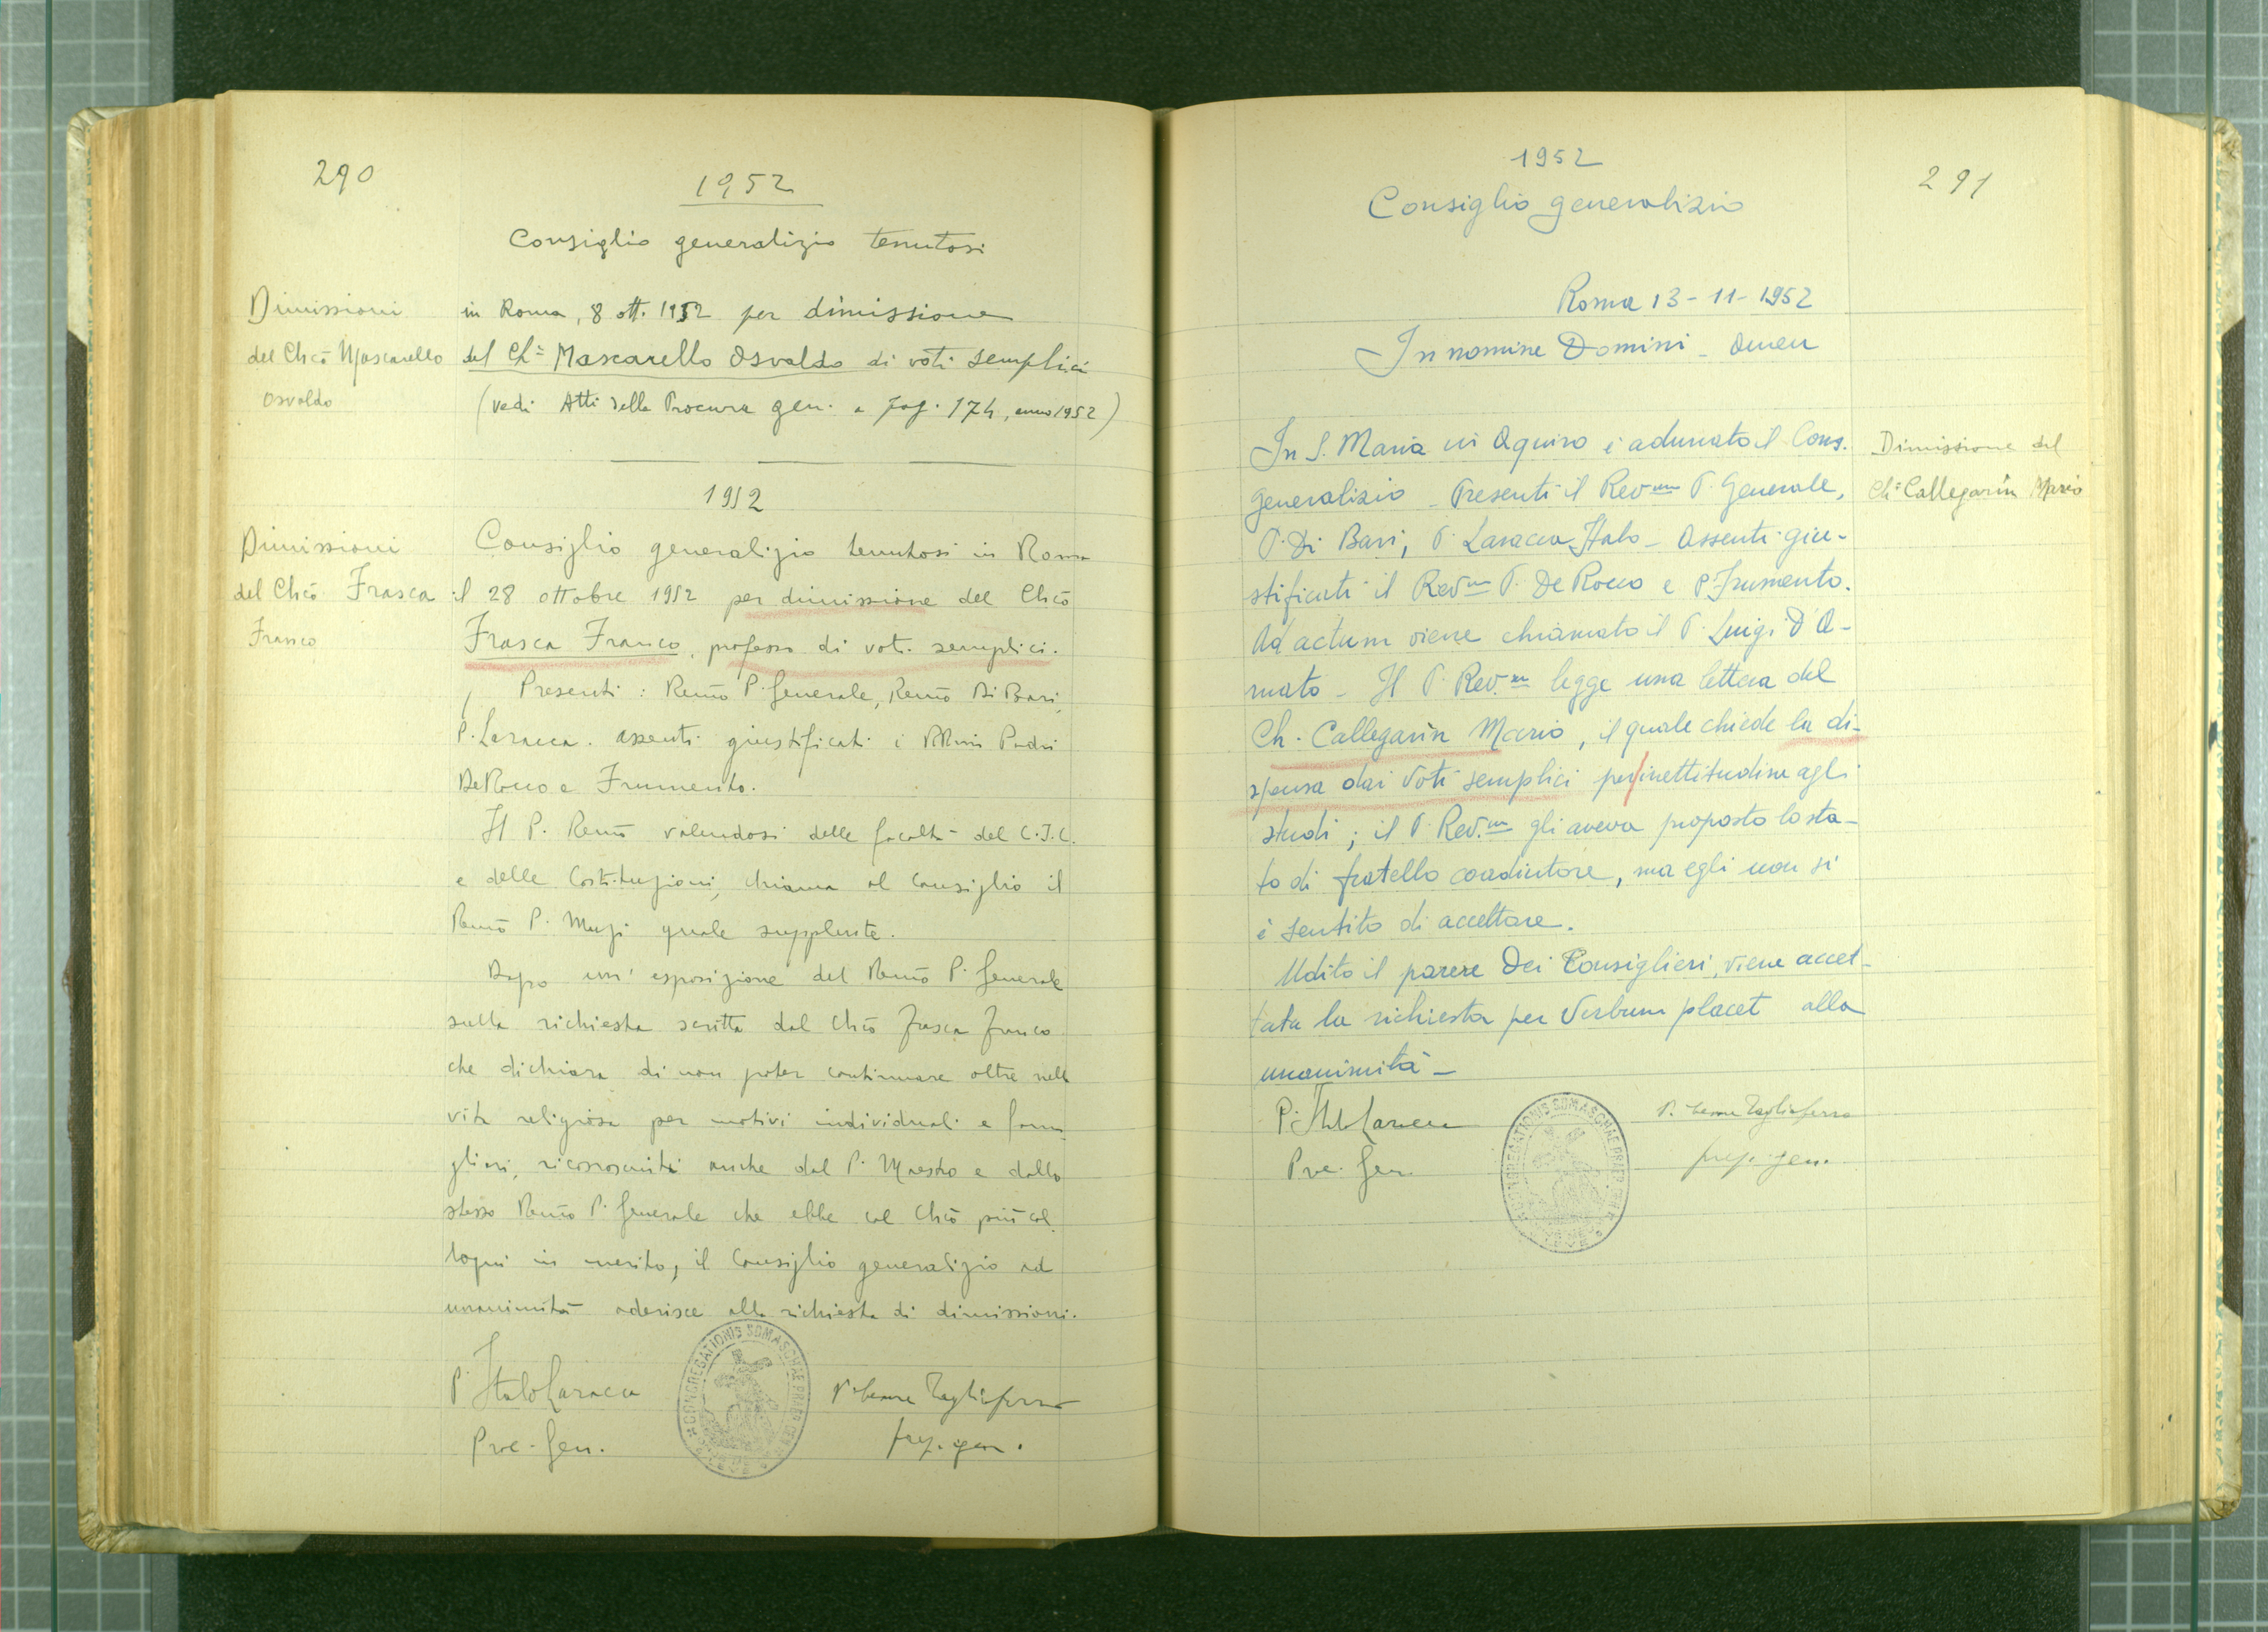 290
1952
Consiglio generalizio tenutosi
Dimissioni
del Chcō Mascarello
Osvaldo
in Roma, 8 ott. 1952 per dimissione
del Ch= Mascarello Osvaldo di voti semplici
(vedi Atti della Procura gen. a pag. 174, anno 1952)
1952
Dimissioni
del Chcō Frasca
Franco
Consiglio generalizio tenutosi in Roma
il 28 ottobre 1952 per dimissione del Chcō
Frasca Franco, professo di voti semplici.
Presenti: Remō P. Generale, Remō Di Bari,
P. Laracca. assenti giustificati i RRmi Padri
De Rocco e Frumento.
Il P. Remō valendosi delle facoltà del C.I.C.
e delle Costituzioni, chiama al Consiglio il
Remō P. Muzi quale supplente.
Dopo un' esposizione del Remō P. Generale
sulla richiesta scritta dal Chcō Frasca Franco
che dichiara di non poter continuare oltre nella
vita religiosa per motivi individuali e fami-
gliari, riconosciuti anche dal P. Maestro e dallo
stesso Remō P. Generale che ebbe col Chcō più col
loqui in merito, il Consiglio generalizio ad
unanimità aderisce alla richiesta di dimissioni.
P. Italo Laracca
Proc. Gen.
CONGREGATIONIS SOMASCHAE PRAEP. GEN.
P. Cesare Tagliaferro
prep. gen.
1952
291
Consiglio generalizio
Roma 13-11-1952
In nomine Domini - Amen
Dimissione del
Ch= Callegarin Mario
In S. Maria in Aquiro è adunato il Cons.
generalizio - Presenti il Revmo P. Generale,
P. Di Bari, P. Laracca Italo - Assenti giu-
stificati il Revmo P. De Rocco e P. Frumento.
Ad actum viene chiamato il P. Luigi D'A-
mato - Il P. Rev.mo legge una lettera del
Ch. Callegarin Mario, il quale chiede la di-
spensa dai voti semplici per inettitudine agli
studi; il P. Rev.mo gli aveva proposto lo sta-
to di fratello coadiutore, ma egli non si
è sentito di accettare.
Udito il parere dei Consiglieri, viene accet-
tata la richiesta per Verbum placet alla
unanimità -
P. Italo Laracca
Proc. Gen.
CONGREGATIONIS SOMASCHAE PRAEP. GEN.
P. Cesare Tagliaferro
prep. gen.